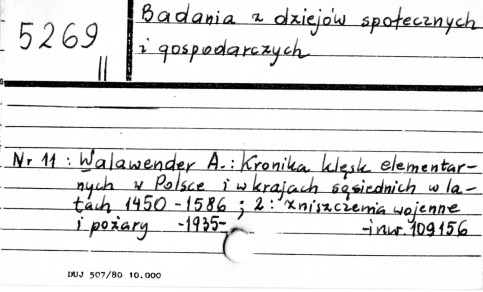 Badania z dziejów społecznych
5269
II
i gospodarczych
Nr 11 : Walawender A.: Kronika klęsk elementar-
nych w Polsce i w krajach sąsiednich w la-
tach 1450-1586 ; 2: zniszczenia wojenne
i pożary -1935- -inw. 109156
DUJ 507/80 10.000